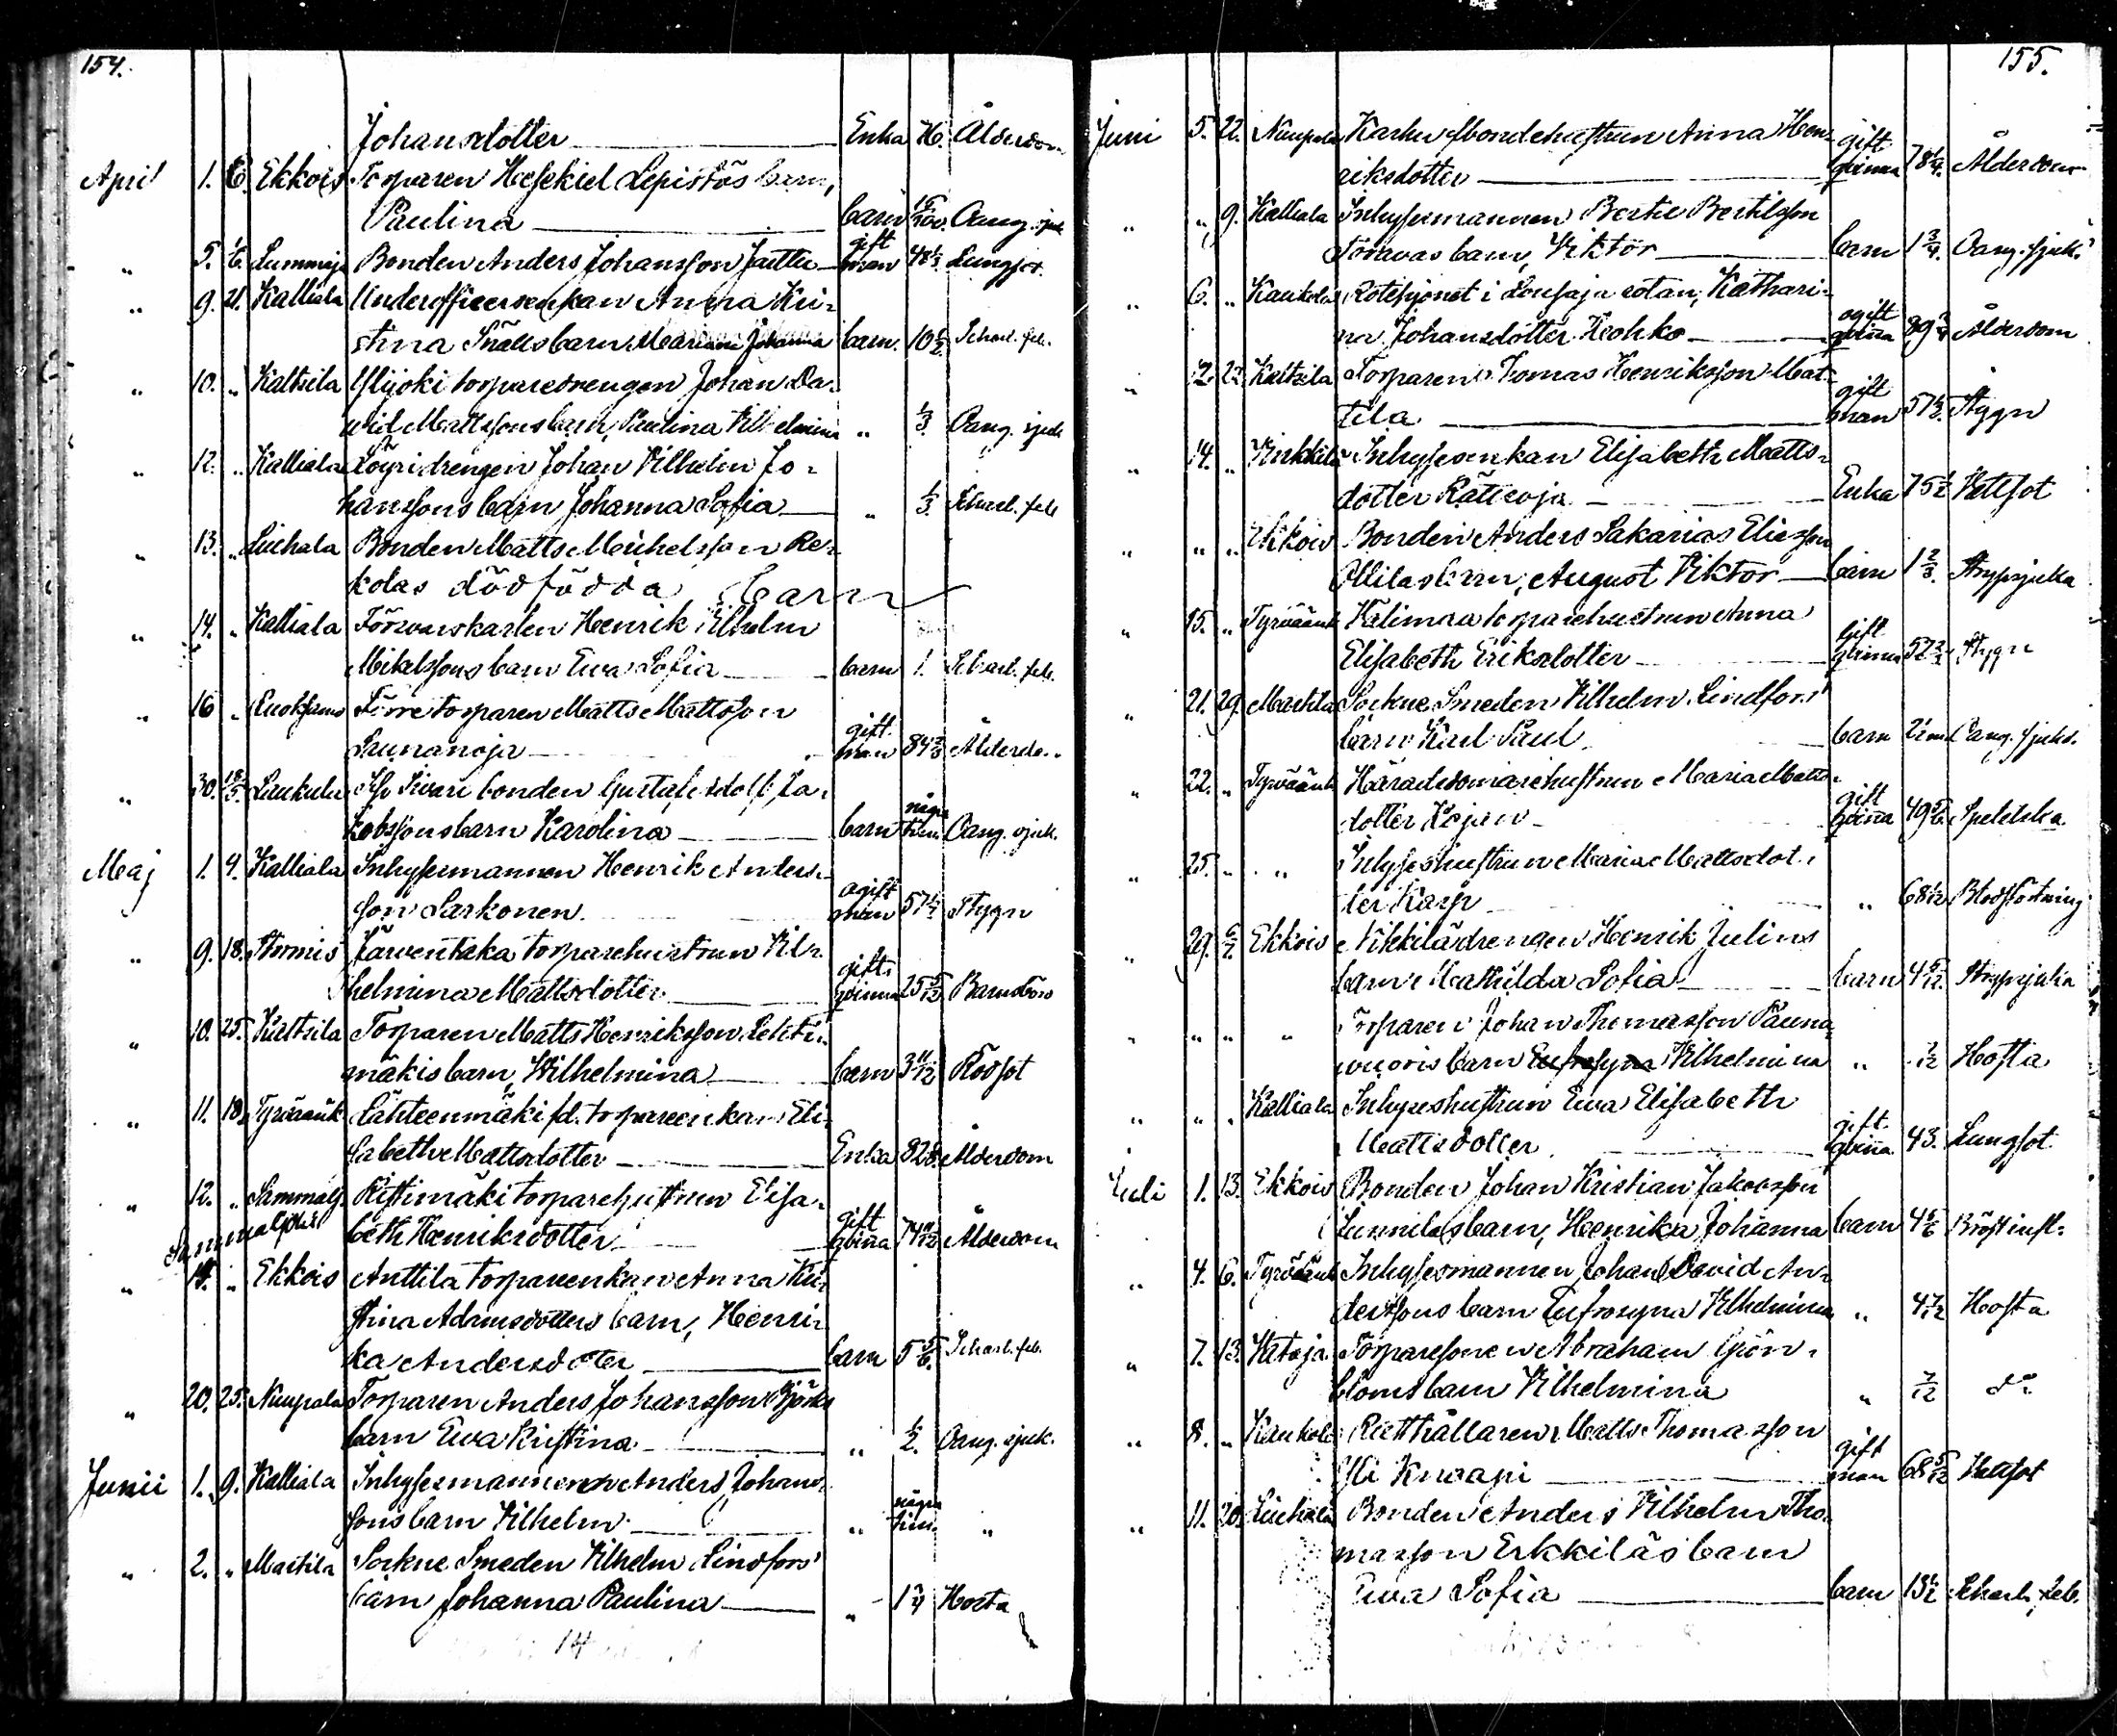 154.
Johansdotter Enka Ålderdom
April 1. 6. Ekkois Torparen Hesekiel Lepistös barn,
Paulina barn Oang. sjuk
" 5. Bonden Anders Johansson gift man Lungsot
" 9. 21. Kalliala Underofficersenkan Anna Kri-
stina Snälls barn Maria Johanna barn. 10 1/2 Scharl. feb.
" 10. " Kaltsila Ylijoki torparedrengen Johan Da-
vid Mattssons barn, Paulina Vilhelmina " 1/3 Oang. sjuk
" 12. " Kalliala Löyri drengen Johan Vilhelm Jo-
hanssons barn Johanna Sofia " 1/3 Scharl. feb
" 13. " Liuhala Bonden Matts Michelsson Re-
kolas dödfödda barn
" 14. " Kalliala Henrik Vilhelm
Mikelssons barn Eva Sofia barn 1. Scharl. feb.
" 16 " Förre torparen Matts Mattsson
Saunanoja gift man 84 Ålderdo..
" 30. Laukula bonden Gustaf Adolf Ja-
kobssons barn Karolina barn några tim. Oang. sjuk.
Maj 1. 4. Kalliala Inhysesmannen Henrik Anders-
son Sarkonen ogift man 57 Stygn
" 9. 18. Stormis Järventaka torparehustrun Vil-
helmina Mattsdotter gift qvinna 25 5/12 Barnsbörd
" 10. 25. Kaltsila Torparen Matts Henriksson Lehti-
mäkis barn, Wilhelmina barn 3 11/12 Rödsot
" 11. 18. Tyrväänk. Lähteenmäki fd. torpareenkan Eli-
sabeth Mattsdotter Enka 82 Ålderdom
" 12. " Sammalj. Ristimäki torparehustrun Elisa-
Sammaljoki beth Henriksdotter gift qvinna 74 11/12 Ålderdom
" " Ekkois Anttila torpareenkan Anna Kri-
stina Adamsdotters barn, Henri-
ka Andersdoter barn 5 5/6. Scharl. feb.
" 20. 25. Nuupala Torparen Anders Johansson Björks
barn Eva Kristina " 1/2. Oang. sjuk.
Junii 1. 9. Kalliala Inhysesmannen Anders Johans-
sons barn Vilhelm " några tim. "
" 2. " Martila Sockne Smeden Vilhelm Lindfors'
barn Johanna Paulina " 1 3/4 Hosta
14
155.
Juni 5. 22. Nuupala Karhu bondehustrun Anna Hen-
riksdotter gift qvinna 78 1/4. Ålderdom
" " 9. Kalliala Inhysesmannen Bertil Bertilsson
barn, Viktor barn 1 3/4. Oang. sjuk.
" 6. " Kaukola Rotehjonet i rotan, Kathari-
na Johansdotter Heohko ogift qvinna Ålderdom
" 12. 22 Kaltsila Torparen Tomas Henriksson Mat-
tila gift man 57 1/2. Stygn
" 14. " Vinkkilä Inhysesenkan Elisabeth Matts-
dotter Rättioja Enka 75 1/2 Vattsot
" " " Ekkois Bonden Anders Sakarias Eliasson
Ollilas barn, August Viktor barn 1 2/3. Strypsjuka
" 15. " Tyrväänk. Kälimaa torparehustrun Anna
Elisabeth Eriksdotter gift qvinna Stygn
" 21. 29 Martila Sockne Smeden Vilhelm Lindfors'
barn Karl Paul barn Oang. sjukd.
" 22. " Tyrväänk. Häradsdomarehustrun Maria Matts-
dotter gift qvinna 49 5/6 Spetelska
" 25. " " Inhyseshustrun Maria Mattsdot-
ter Karp " 68 Blodstörtning
" 29. 6/7. Ekkois Nikkilä drengen Henrik Julius
barn Mathilda Sofia barn 4 5/12. Strypsjuka
" " " " Torparen Johan Thomasson Pauna-
vuoris barn Eufrosyna Vilhelmina " 7/12 Hosta
" " " Kalliala Inhyseshustrun Eva Elisabeth
Mattsdotter gift qvinna 43. Lungsot
Juli 1. 13. Ekkois Bonden Johan Kristian Jakobsson
Junnilas barn, Henrika Johanna barn 4 5/6 Bröstinfl.
" 4. 6. Tyrväänk. Inhysesmannen Johan David An-
derssons barn Eufrosyna Vilhelmina " 4 7/12 Hosta
" 7. 13. Kataja Torparesonen Abraham Grön-
bloms barn Vilhelmina " 7/12 do
" 8. " Kaukola Rusthållaren Matts Thomasson
Yli Knaapi gift man 68 5/12 Vattsot
" 11. 20. Liuhala Bonden Anders Vilhelm Tho-
masson Erkkiläs barn
Eva Sofia barn 13 1/2 Scharl. feb.